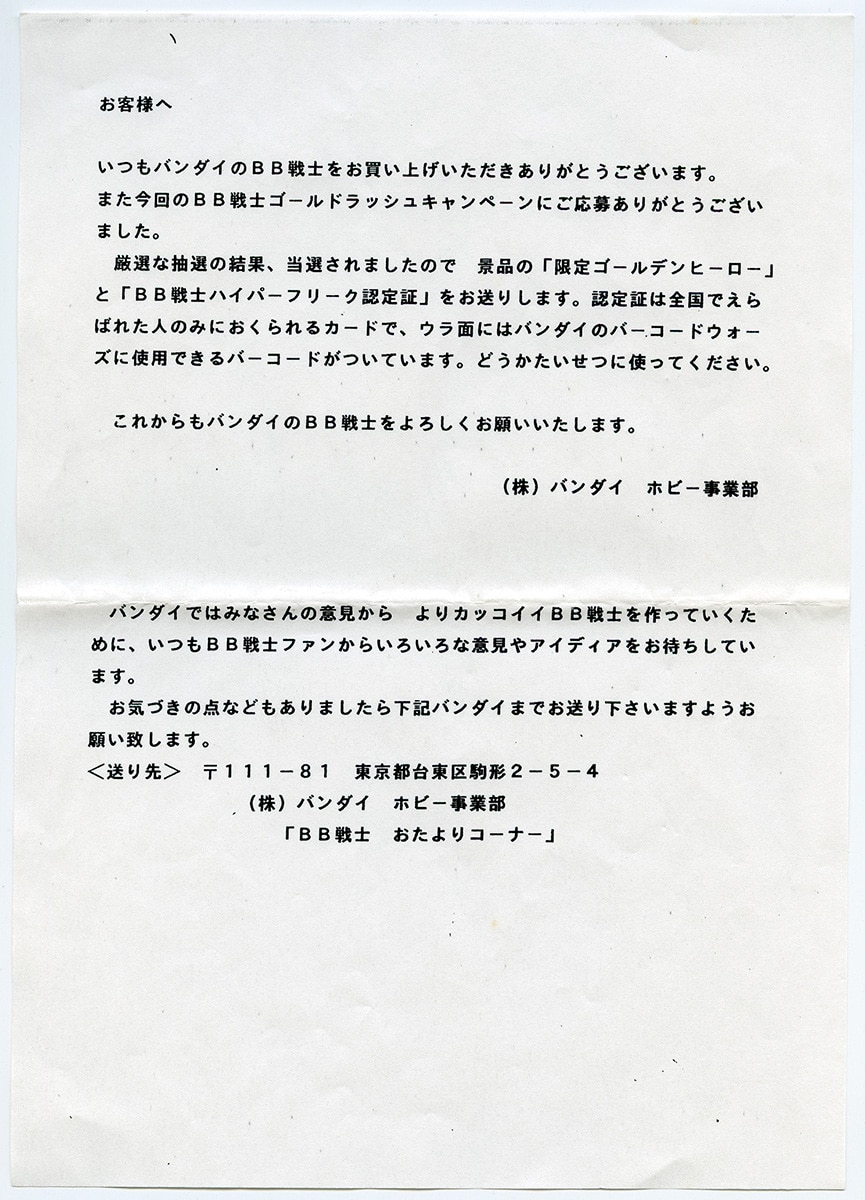 お客様へ
いつもバンダイのＢＢ戦士をお買い上げいただきありがとうございます。
また今回のＢＢ戦士ゴールドラッシュキャンペーンにご応募ありがとうござい
ました。
　厳選な抽選の結果、当選されましたので　景品の「限定ゴールデンヒーロー」
と「ＢＢ戦士ハイパーフリーク認定証」をお送りします。認定証は全国でえら
ばれた人のみにおくられるカードで、ウラ面にはバンダイのバーコードウォー
ズに使用できるバーコードがついています。どうかたいせつに使ってください。
　これからもバンダイのＢＢ戦士をよろしくお願いいたします。
（株）バンダイ　ホビー事業部
　バンダイではみなさんの意見から　よりカッコイイＢＢ戦士を作っていくた
めに、いつもＢＢ戦士ファンからいろいろな意見やアイディアをお待ちしてい
ます。
　お気づきの点などもありましたら下記バンダイまでお送り下さいますようお
願い致します。
＜送り先＞　〒１１１－８１　東京都台東区駒形２－５－４
（株）バンダイ　ホビー事業部
「ＢＢ戦士　おたよりコーナー」